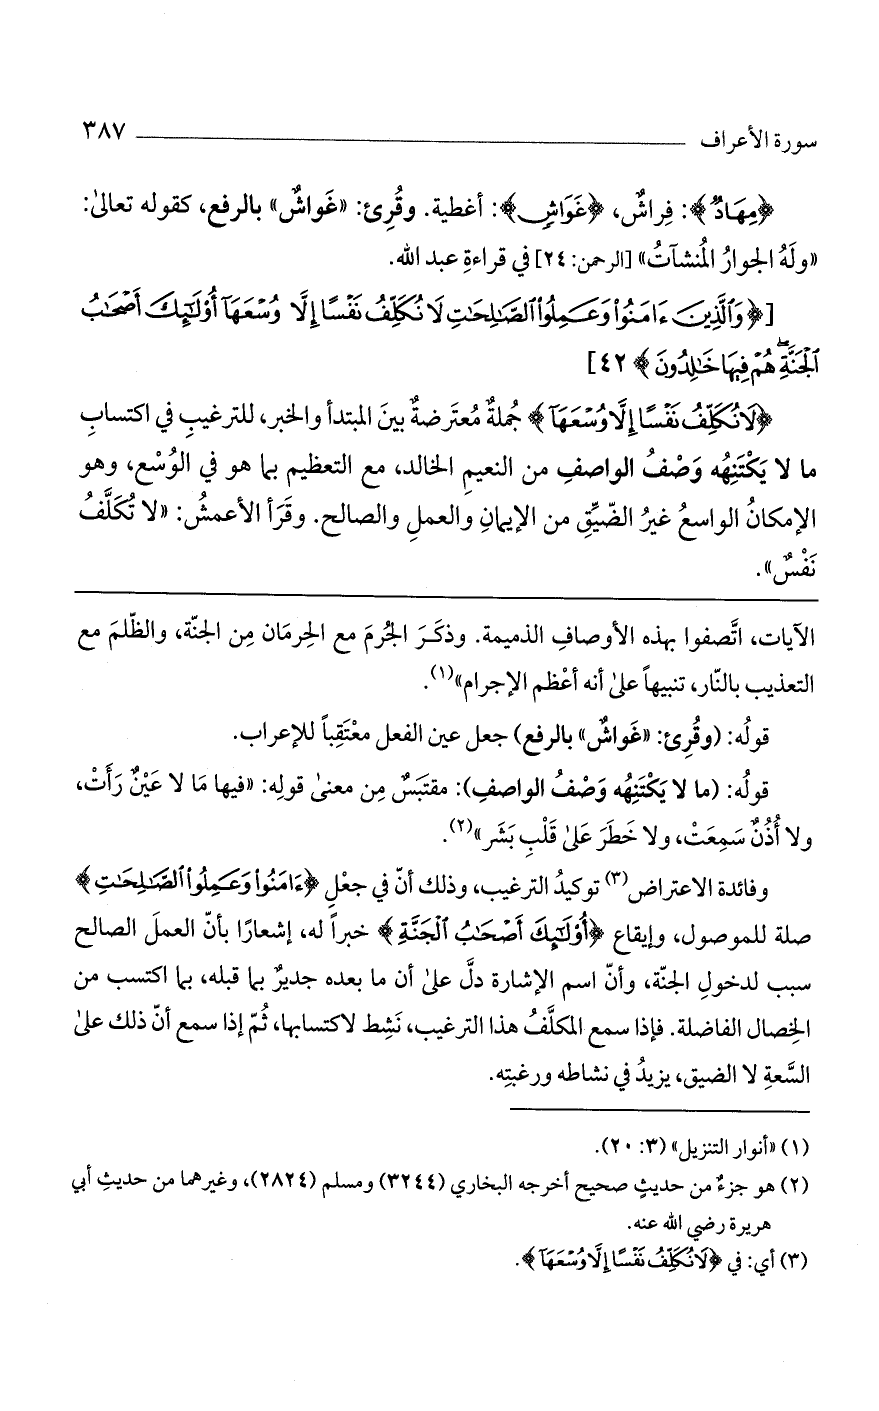 سورة الأعراف ٣٨٧
﴿مِهَادٌ﴾: فِراشٌ، ﴿غَوَاشٍ﴾: أغطية. وقُرِئ: «غَواشٌ» بالرفع، كقوله تعالىٰ:
«ولَهُ الجوارُ المُنشآتُ» [الرحمن: ٢٤] في قراءةِ عبد الله.
[﴿وَٱلَّذِينَ ءَامَنُواْ وَعَمِلُواْ ٱلصَّٰلِحَٰتِ لَا نُكَلِّفُ نَفْسًا إِلَّا وُسْعَهَآ أُوْلَٰٓئِكَ أَصْحَٰبُ
ٱلْجَنَّةِ ۖ هُمْ فِيهَا خَٰلِدُونَ﴾ ٤٢]
﴿لَا نُكَلِّفُ نَفْسًا إِلَّا وُسْعَهَآ﴾ جُملةٌ مُعتَرضةٌ بينَ المبتدأ والخبر، للترغيبِ في اكتسابِ
ما لا يَكْتَنِهُه وَصْفُ الواصفِ من النعيمِ الخالد، مع التعظيم بما هو في الوُسْع، وهو
الإمكانُ الواسعُ غيرُ الضّيِّقِ من الإيمانِ والعملِ والصالح. وقَرَأ الأعمشُ: «لا تُكَلَّفُ
نَفْسٌ».
الآيات، اتَّصفوا بهذه الأوصافِ الذميمة. وذكَرَ الجُرمَ مع الحِرمَان مِن الجنّة، والظّلمَ مع
التعذيب بالنّار، تنبيهاً علىٰ أنه أعْظم الإجرام»(١).
قولُه: (وقُرِئ: «غَواشٌ» بالرفع) جعل عين الفعل معْتَقِباً للإعراب.
قولُه: (ما لا يَكْتَنِهُه وَصْفُ الواصفِ): مقتبَسٌ مِن معنىٰ قولِه: «فيها مَا لا عَيْنٌ رَأَتْ،
ولا أُذُنٌ سَمِعَتْ، ولا خَطَرَ عَلىٰ قَلْبِ بَشَر»(٢).
وفائدة الاعتراض(٣) توكيدُ الترغيب، وذلك أنّ في جعْلِ ﴿ءَامَنُواْ وَعَمِلُواْ ٱلصَّٰلِحَٰتِ﴾
صلة للموصول، وإيقاع ﴿أُوْلَٰٓئِكَ أَصْحَٰبُ ٱلْجَنَّةِ﴾ خبراً له، إشعارًا بأنّ العملَ الصالح
سبب لدخولِ الجنّة، وأنّ اسم الإشارة دلَّ علىٰ أن ما بعده جديرٌ بما قبله، بما اكتسب من
الخِصال الفاضلة. فإذا سمع المكلَّفُ هذا الترغيب، نَشِط لاكتسابها، ثُمّ إذا سمع أنّ ذلك علىٰ
السَّعةِ لا الضيق، يزيدُ في نشاطه ورغبتِه.
(١) «أنوار التنزيل» (٣: ٢٠).
(٢) هو جزءٌ من حديثٍ صحيح أخرجه البخاري (٣٢٤٤) ومسلم (٢٨٢٤)، وغيرهما من حديثِ أبي
هريرة رضي الله عنه.
(٣) أي: في ﴿لَا نُكَلِّفُ نَفْسًا إِلَّا وُسْعَهَآ﴾.